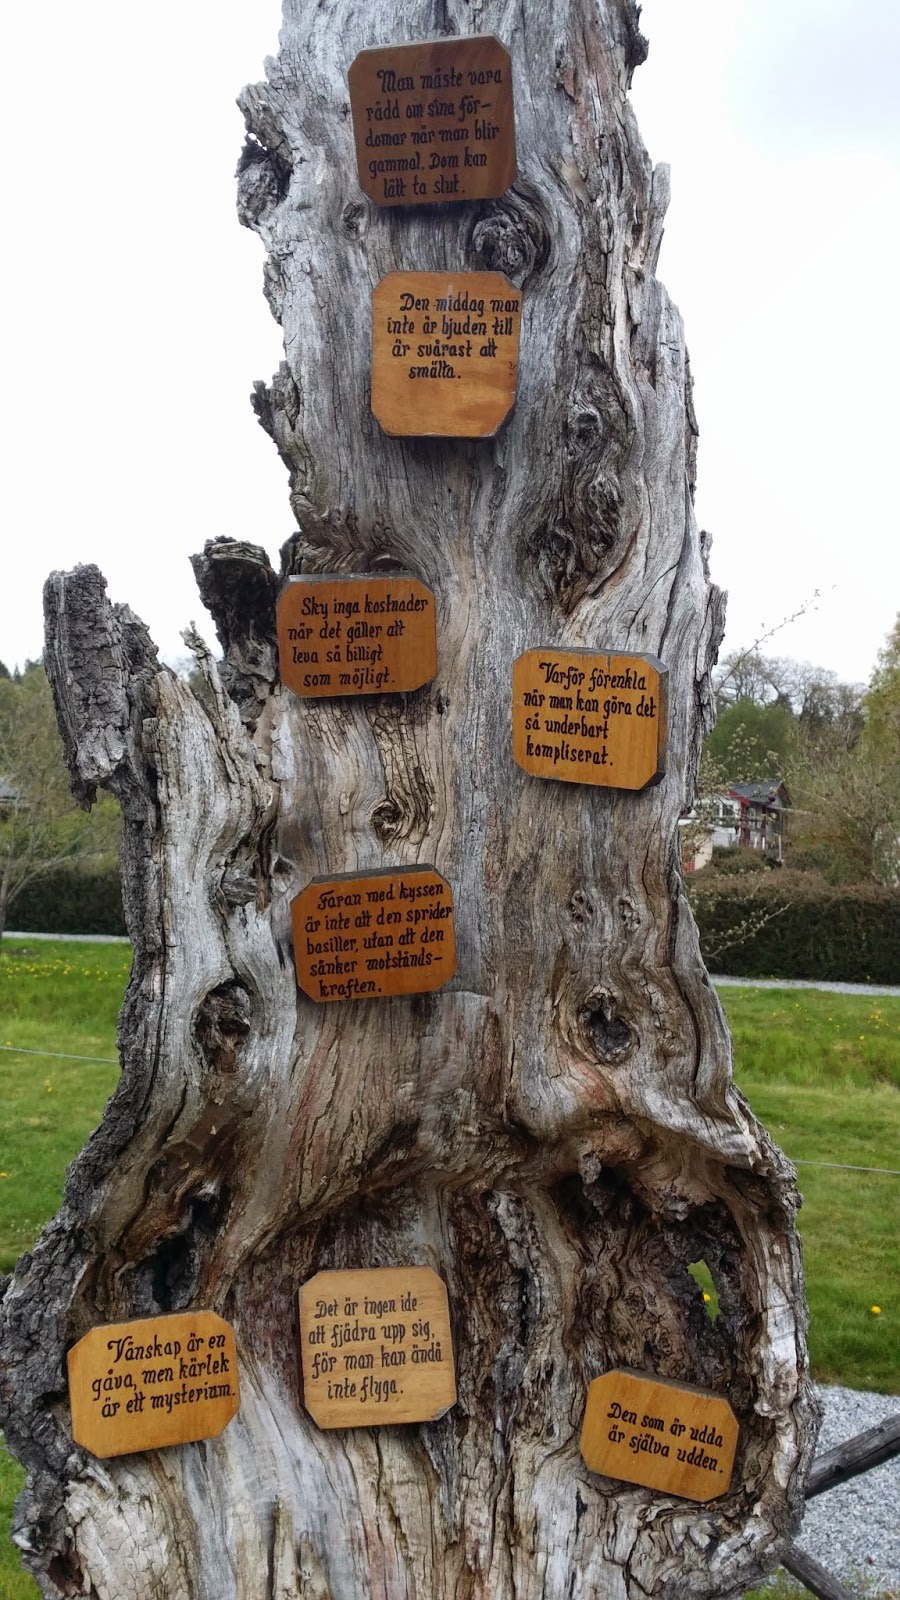 Man måste vara
rädd om sina för-
domar när man blir
gammal. Dom kan
lätt ta slut.
Den middag man
inte är bjuden till
är svårast att
smälta.
Sky inga kostnader
när det gäller att
leva så billigt
som möjligt.
Varför förenkla
när man kan göra det
så underbart
kompliserat.
Faran med kyssen
är inte att den sprider
basiller, utan att den
sänker motstånds-
kraften.
Vänskap är en
gåva, men kärlek
är ett mysterium.
Det är ingen ide
att fjädra upp sig,
för man kan ändå
inte flyga.
Den som är udda
är själva udden.